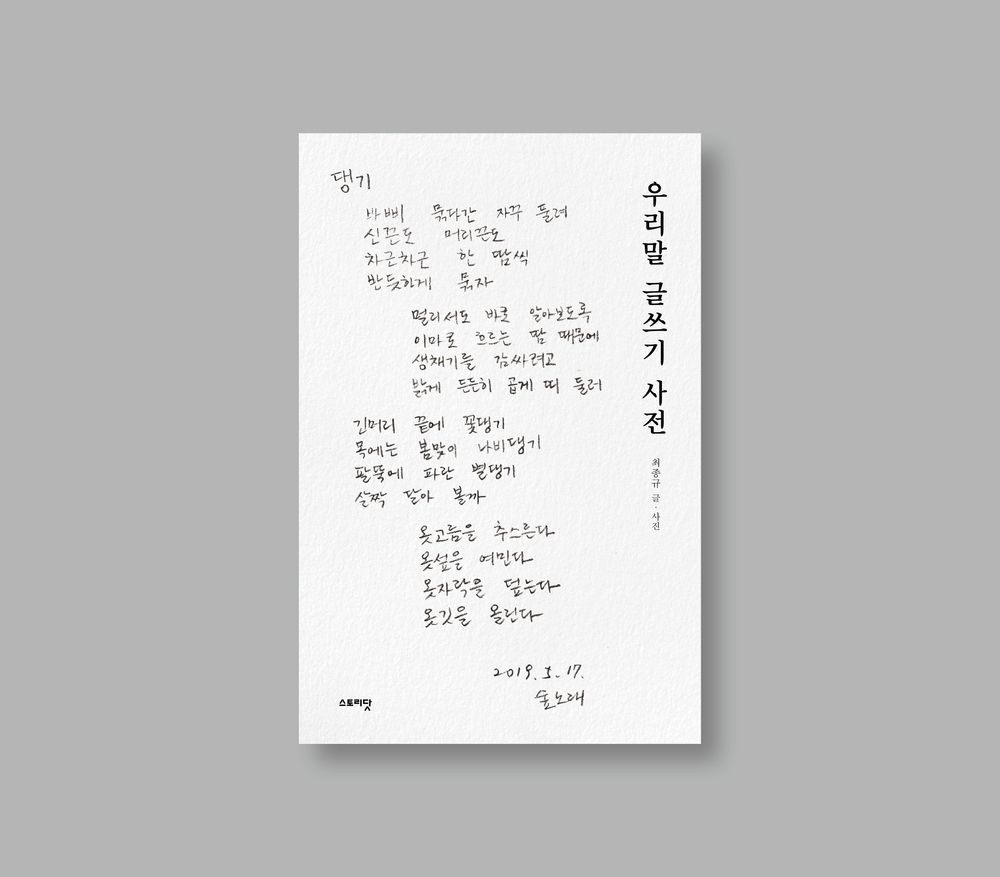 댕기
바삐 묶다간 자꾸 둘려
신끈도 머리끈도
차근차근 한 땀씩
반듯하게 묶자
멀리서도 바로 알아보도록
이마로 흐르는 땀 때문에
생채기를 감싸려고
밝게 든든히 곱게 띠 둘러
긴머리 끝에 꽃댕기
목에는 봄맞이 나비댕기
팔뚝에 파란 별댕기
살짝 달아 볼까
옷고름을 추스른다
옷섶을 여민다
옷자락을 덮는다
옷깃을 올린다
2019. 5. 17.
숲노래
우리말 글쓰기 사전
최종규 글·사진
스토리닷